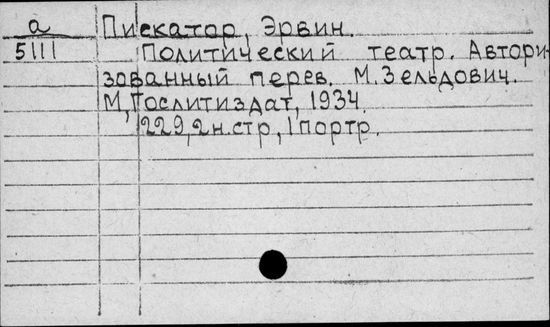 а Пискатор, Эрвин.
5111 Политический театр. Автори-
зованный перев. М. Зельдович.
М, Гослитиздат, 1934.
229, 2 н. стр, 1 портр.